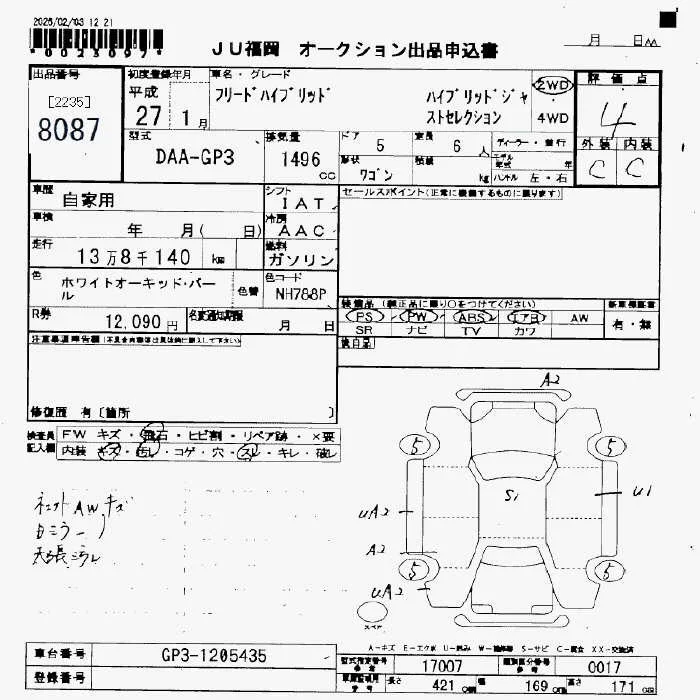 2026/02/03 12 21
*0023097*
JU福岡 オークション出品申込書
月 日
出品番号
[2235]
8087
初度登録年月
平成
27 1月
車名・グレード
フリードハイブリッド ハイブリッドジャ
ストセレクション
2WD
4WD
評価点
4
外装 内装
C C
型式
DAA-GP3
排気量
1496
cc
ドア 5
定員 6人
形状
ワゴン
積載 kg
ディーラー・並行
モデル年式 年
ハンドル 左・右
車歴
自家用
シフト
IAT
車検
年 月( 日)
冷房
AAC
走行
13万8千140 km
燃料
ガソリン
色
ホワイトオーキッド・パー
ル
色替
色コード
NH788P
R券
12,090円
名変通知期限
月 日
セールスポイント(正常に機能するものに限ります)
装備品 (純正品に限り○をつけてください)
PS PW ABS エアB AW
SR ナビ TV カワ
新車保証書
有・無
後日品
注意事項申告欄
修復歴 有〔箇所 〕
検査員
記入欄
FW キズ・飛石・ヒビ割・リペア跡・×要
内装 キズ・汚レ・コゲ・穴・スレ・キレ・破レ
AW キズ
A2
5 5
S1
U1
UA2
A2
5 5
UA2
スペア
A-キズ E-エクボ U-凹み W-補修跡 S-サビ C-腐食 XX-交換済
車台番号
GP3-1205435
登録番号
型式指定番号
17007
類別区分番号
0017
長さ 421 幅 169 高さ 171